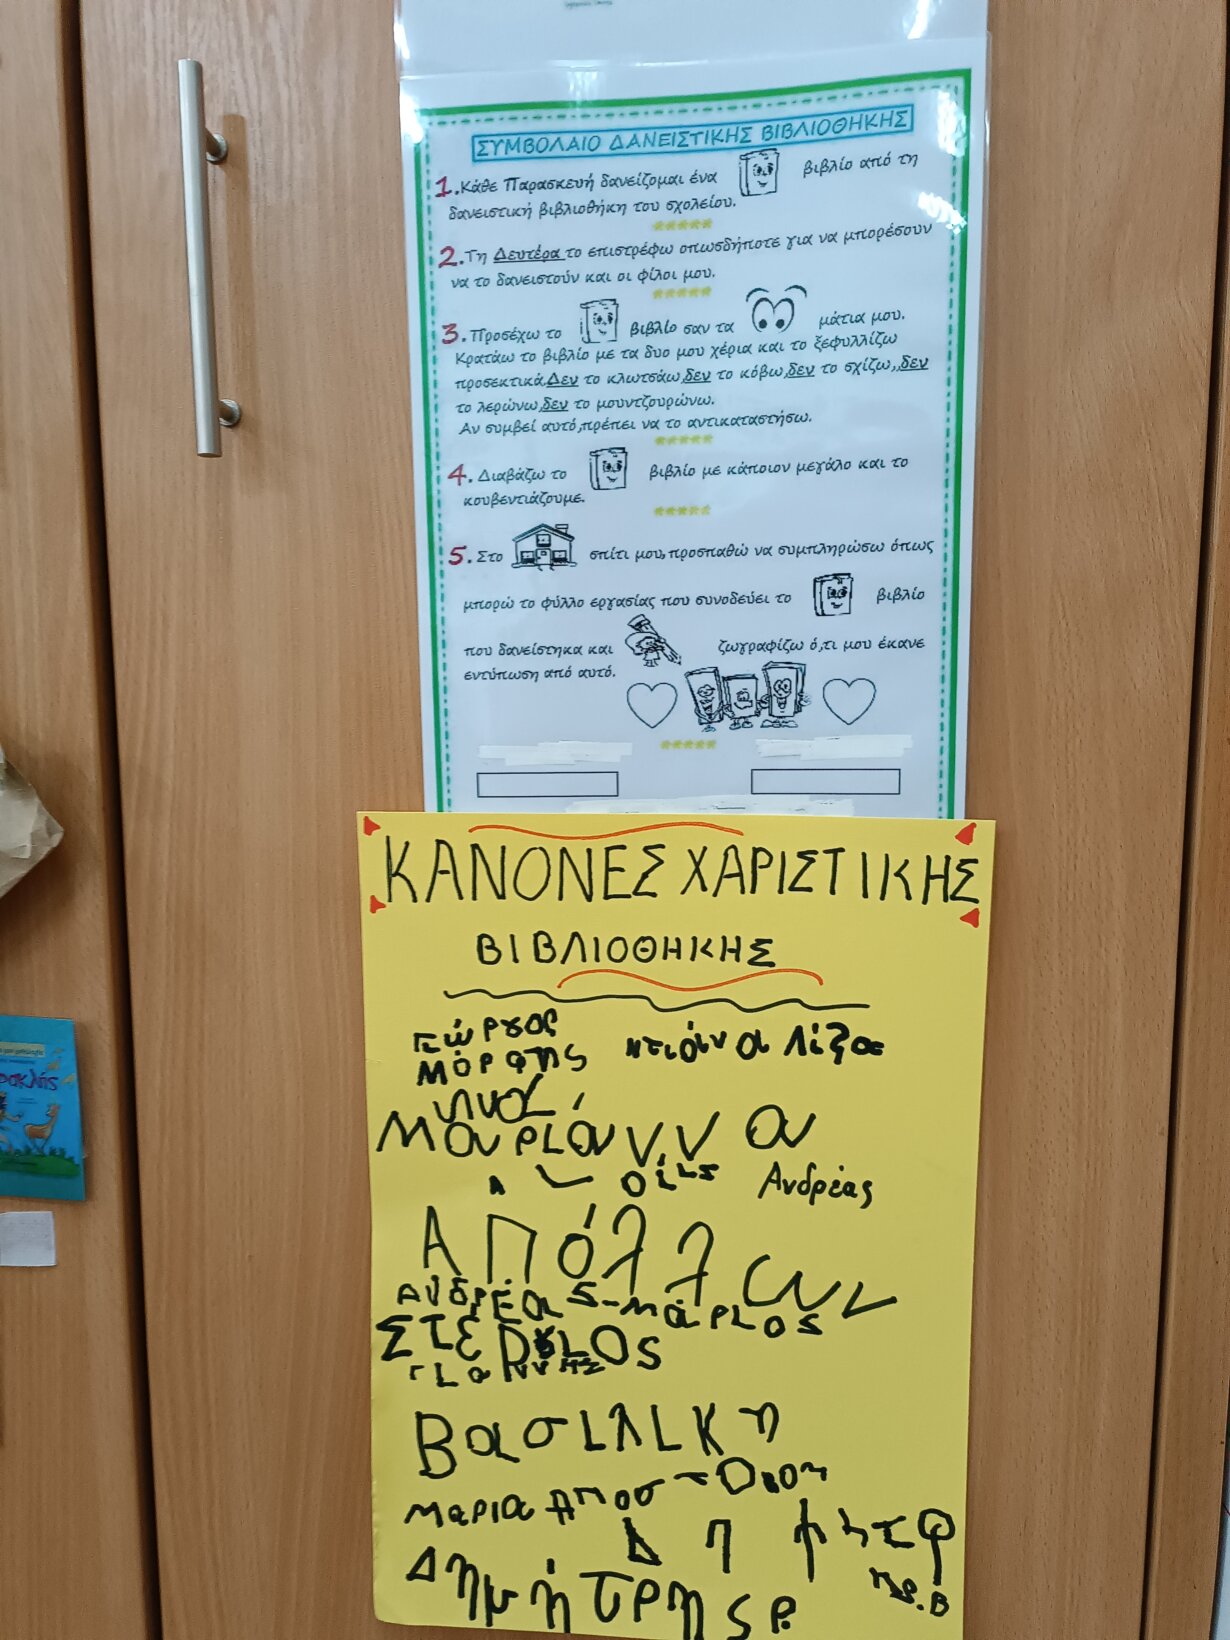 ΣΥΜΒΟΛΑΙΟ ΔΑΝΕΙΣΤΙΚΗΣ ΒΙΒΛΙΟΘΗΚΗΣ
1.Κάθε Παρασκευή δανείζομαι ένα βιβλίο από τη
δανειστική βιβλιοθήκη του σχολείου.
2.Τη Δευτέρα το επιστρέφω οπωσδήποτε για να μπορέσουν
να το δανειστούν και οι φίλοι μου.
3.Προσέχω το βιβλίο σαν τα μάτια μου.
Κρατάω το βιβλίο με τα δυο μου χέρια και το ξεφυλλίζω
προσεκτικά.Δεν το κλωτσάω,δεν το κόβω,δεν το σχίζω,,δεν
το λερώνω,δεν το μουντζουρώνω.
Αν συμβεί αυτό,πρέπει να το αντικαταστήσω.
4. Διαβάζω το βιβλίο με κάποιον μεγάλο και το
κουβεντιάζουμε.
5.Στο σπίτι μου,προσπαθώ να συμπληρώσω όπως
μπορώ το φύλλο εργασίας που συνοδεύει το βιβλίο
που δανείστηκα και ζωγραφίζω ό,τι μου έκανε
εντύπωση από αυτό.
ΚΑΝΟΝΕΣ ΧΑΡΙΣΤΙΚΗΣ
ΒΙΒΛΙΟΘΗΚΗΣ
Μόρφης
Λίζα
Μαριάννα
Ανδρέας
Απόλλων
Ανδρέας-Μάριος
ΣΤΕ
Γιαννης
Βασιλική
Μαρια
Δημήτρης Ρ.